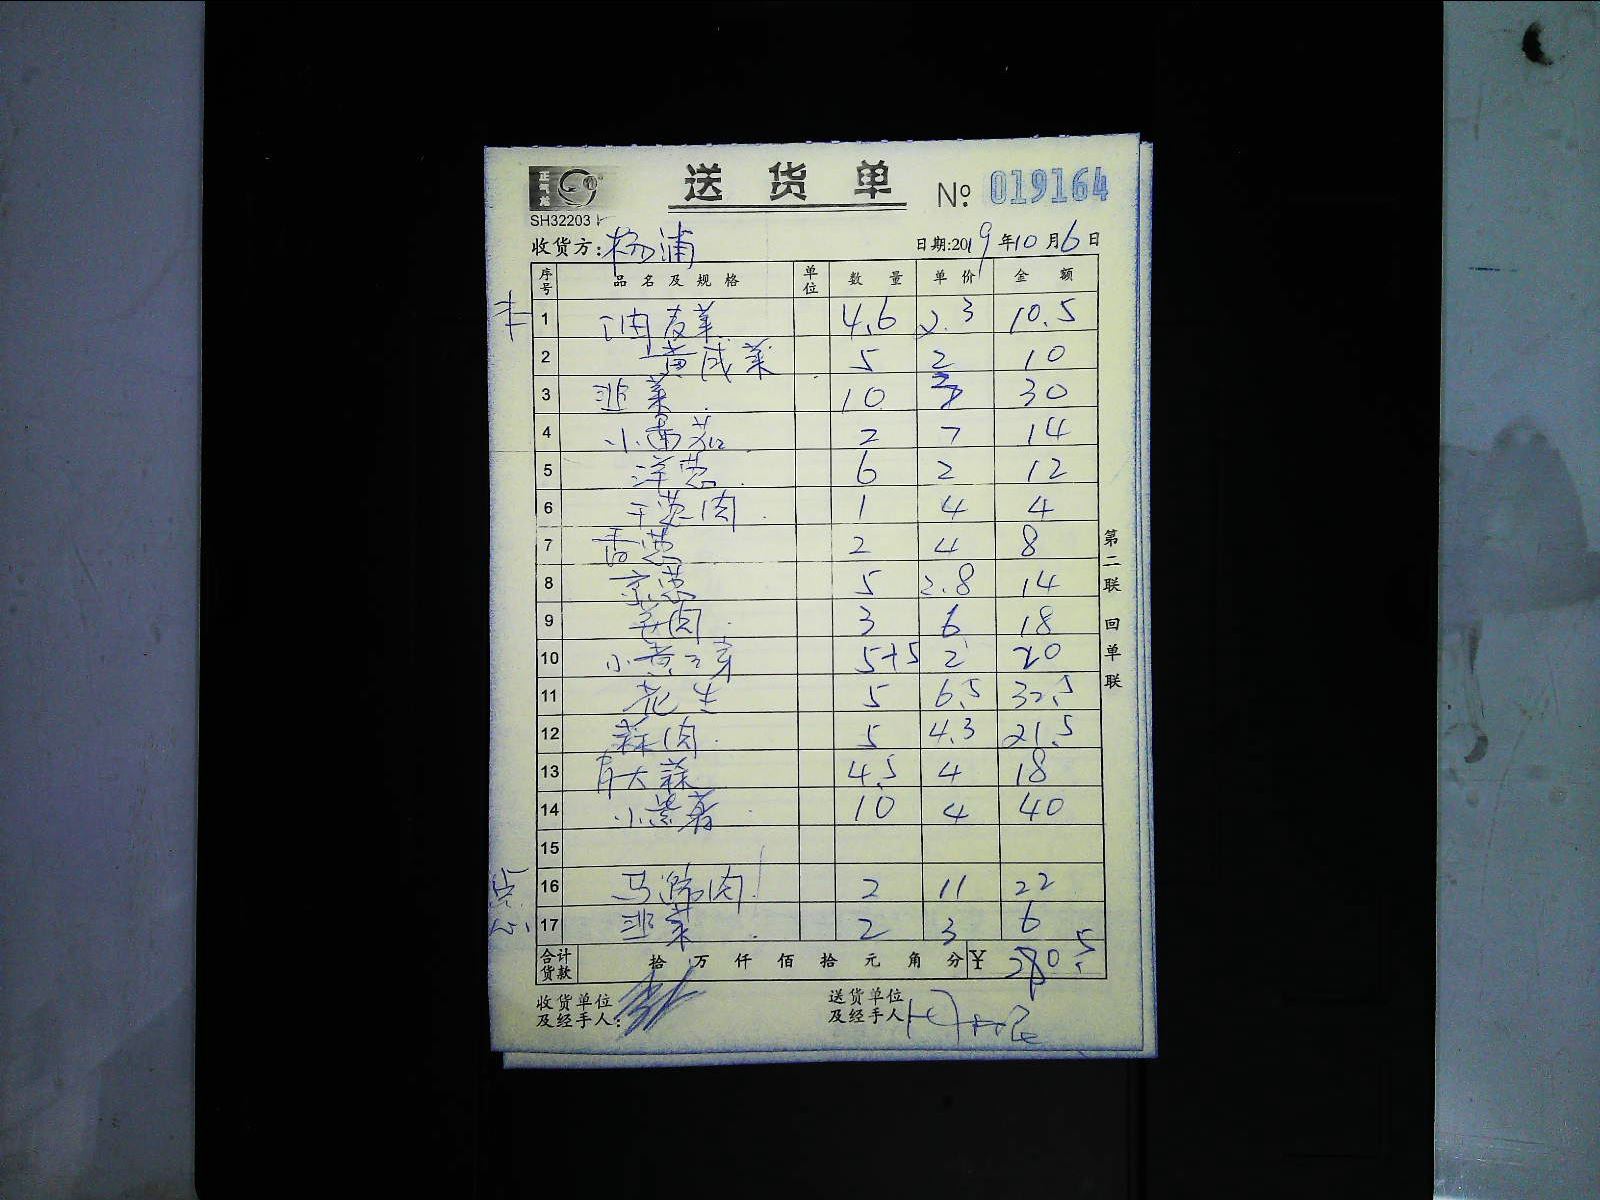 正气龙
送货单 № 019164
SH32203
收货方: 杨浦 日期:2019年10月6日
序号 品名及规格 单位 数量 单价 金额
1 油麦菜 4.6 2.3 10.5
2 黄成菜 5 2 10
3 韭菜 10 3 30
4 小番茄 2 7 14
5 洋葱 6 2 12
6 干葱肉 1 4 4
7 香葱 2 4 8
8 京葱 5 2.8 14
9 姜肉 3 6 18
10 小黄豆芽 5+5 2 20
11 花生 5 6.5 32.5
12 蒜肉 5 4.3 21.5
13 青大蒜 4.5 4 18
14 小紫薯 10 4 40
15
点心
16 马蹄肉 2 11 22
17 韭菜 2 3 6
合计货款 拾万仟佰拾元角分 ¥ 280.5
收货单位及经手人:
送货单位及经手人
第二联 回单联